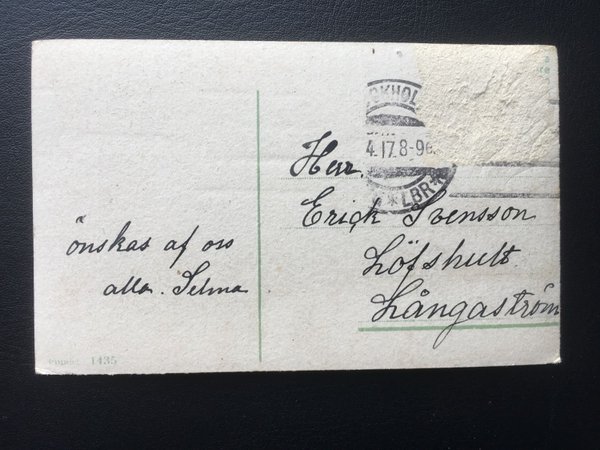 önskas af oss
alla. Selma
OCKHOL
4.17.8-9
*LBR*
Herr
Erick Svensson
Löfshult
Långaström
1435